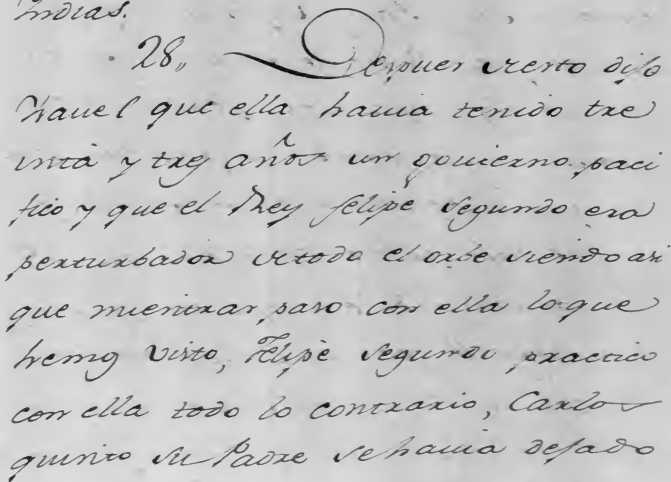 Indias.
28,, Depues desto dijo
Ysavel que ella havia tenido tre
inta y tres años un govierno paci
fico y que el Rey felipe segundo era
perturbador detodo el orbe siendo asi
que mientras paso con ella loque
hemos visto, Felipe segundo practico
con ella todo lo contrario, Carlos
quinto su Padre sehavia dejado